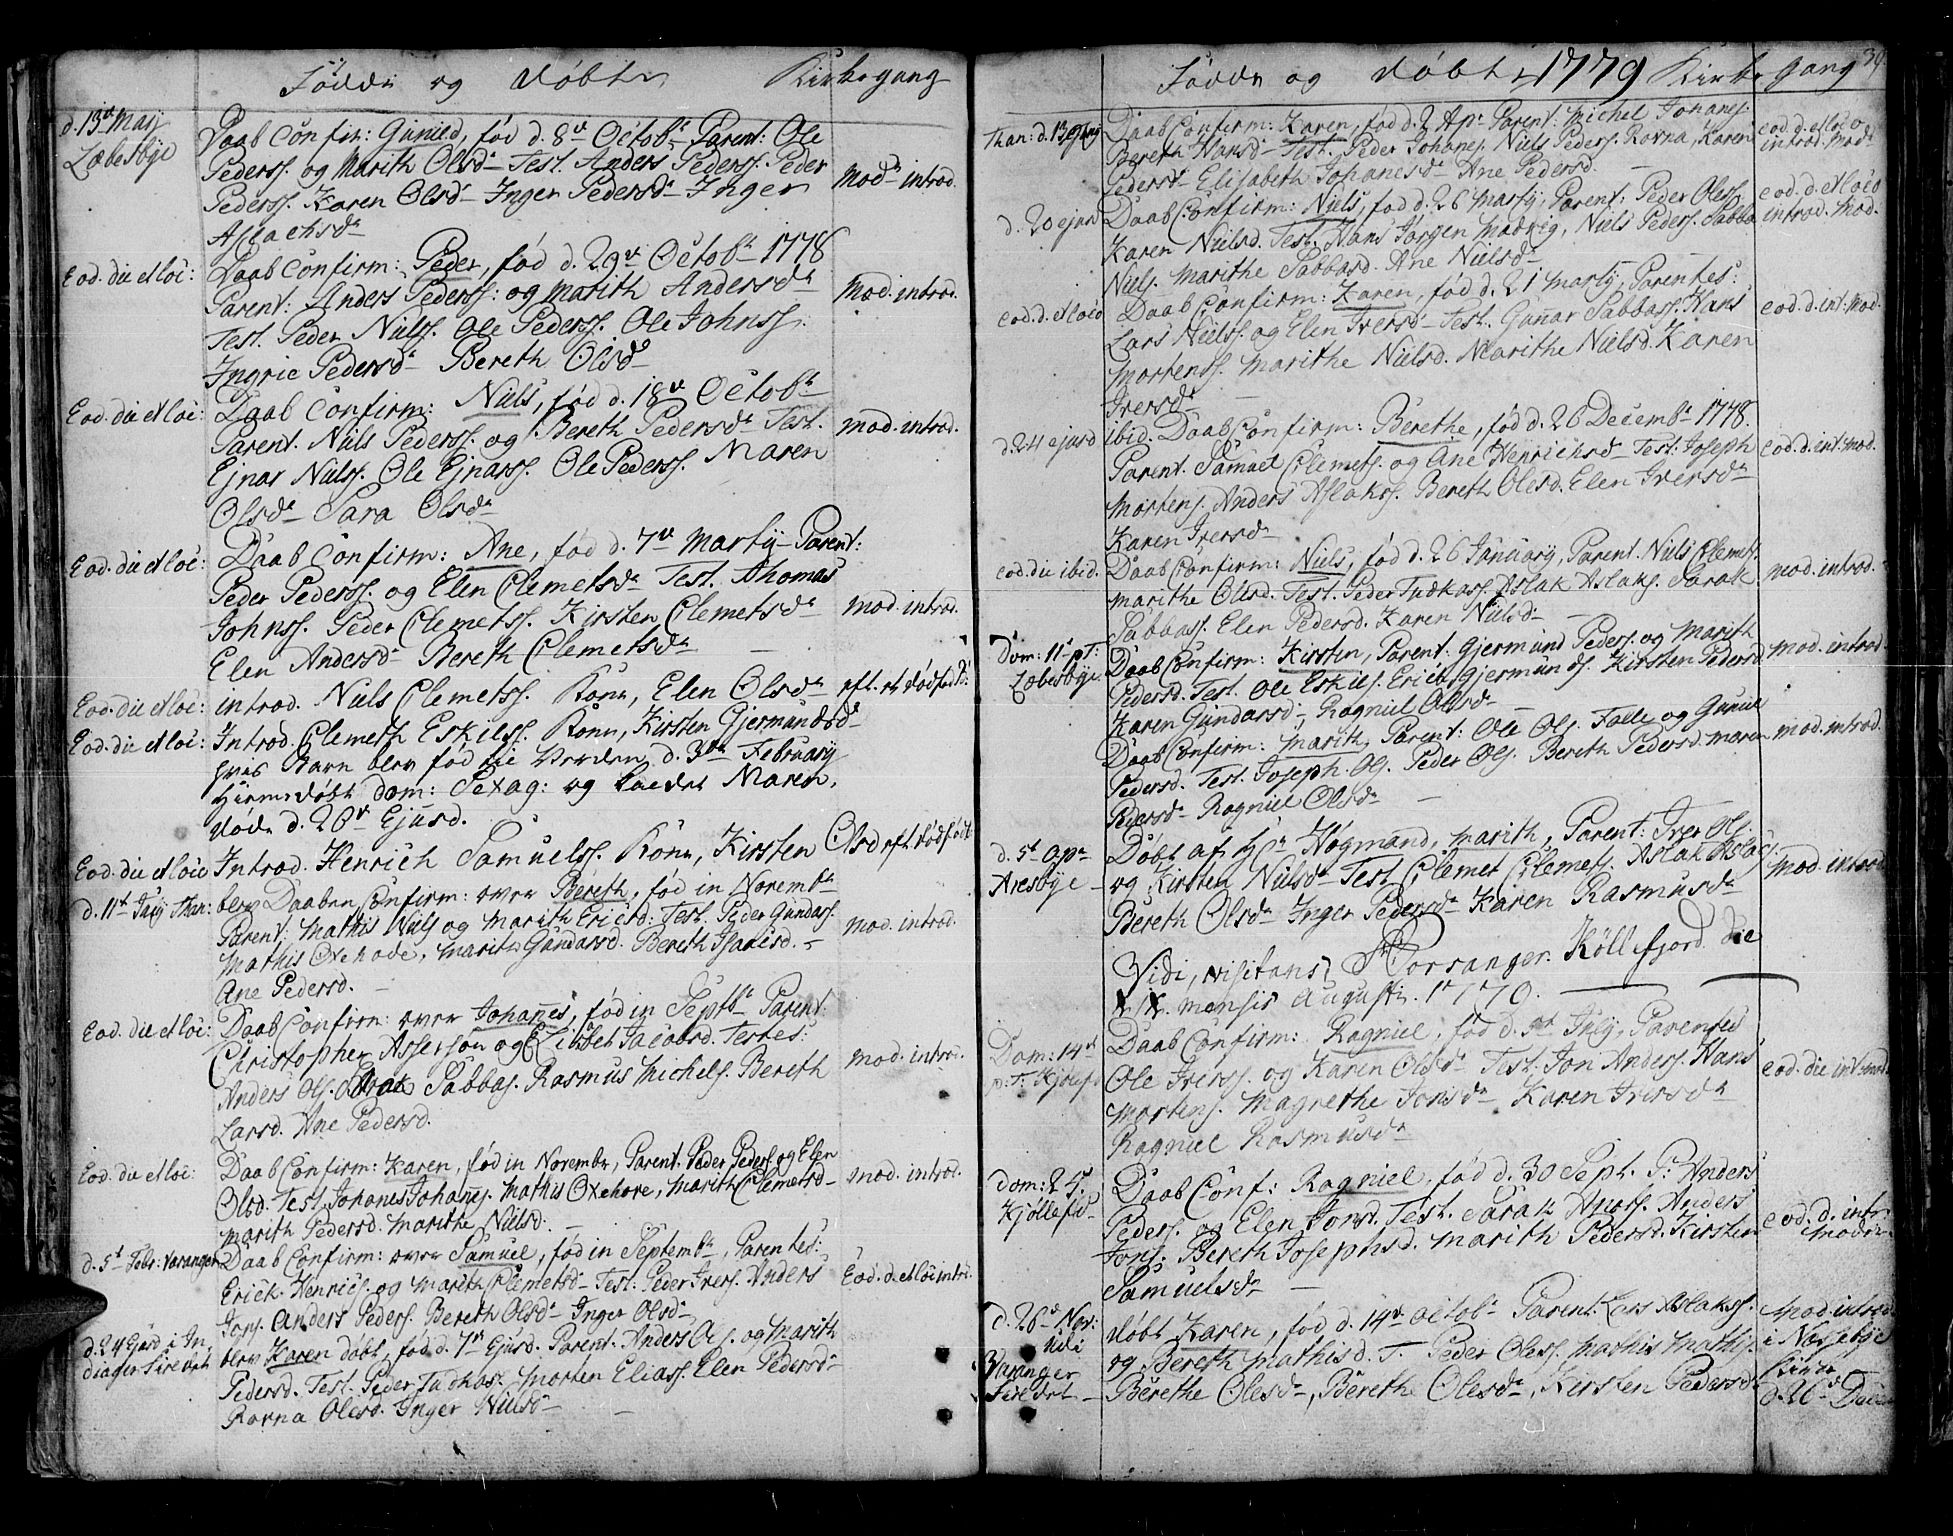 Födde og Döbte Kirkegang
d. 13de Maj
Læbesbye
Daab Confir: Gunild, fød d. 8de Octobr Parent: Ole
Pederss. og Marith Olsdr Test. Anders Pederss. Peder
Pederss. Karen Olsdr Inger Pedersdr Inger
Aslachsdr
Modr introd.
Eod. die et loc:
Daab Confirm: Peder, fød d. 29de Octobr 1778
Parent: Anders Pederss: og Marith Andersdr
Test. Peder Nielss. Ole Pederss. Ole Johnss.
Ingrie Pedersdr Bereth Olsdr
Mod. introd.
Eod. die et loc:
Daab Confirm: Niels, fød d. 18de Octobr
Parent. Niels Pederss. og Bereth Pedersdr Test.
Ejnar Nielss. Ole Ejnarss. Ole Pederss. Maren
Olsdr Sara Olsdr
mod. introd.
Eod. die et loc:
Daab Confirm: Ane, fød d. 7de Martij Parent:
Peder Pederss. og Elen Clemetsdr Test. Thomas
Johnss. Peder Clemetss. Kirsten Clemetsdr
Elen Andersdr Bereth Clemetsdr
mod. introd.
Eod. die et loc:
introd. Niels Clemetss. Kone, Elen Olsdr eft. et dødfød B:
Eod. die et loc:
Introd. Clemeth Eskilss. Kone, Kirsten Gjermundsdr
hvis Barn blev fød til Verden d. 3de February
Hiemedøbt Dom: Sexag: og kaldet Maren,
døde d. 20de Ejusd.
Eod. die et loc
Introd. Henrich Samuelss. Kone, Kirsten Olsd eft dødfødt
d. 11te July Than:
blev Daaben Confirm: over Bereth, fød in Novembr
Parent: Mathis Niels og Marith Ericsd: Test. Peder Gundass.
Mathis Oxehode, Marith Gundassd. Bereth Isacksd.
Ane Pedersd.
mod. introd.
Eod. die et loc:
Daab Confirm: over Johanes, fød in Septbr Parent:
Christopher Asserson og Elisbet Jacobsd. Testes:
Anders Ols. Sabbas. Rasmus Michels. Bereth
Larsd. Ane Pedersd.
mod. introd.
Eod. die et loc:
Daab Confirm: Karen, fød in Novembr, Parent. Peder Peders og Elen
Olsd. Test. Johanes Johans. Mathis Oxehove, Marith Clemetsd
Marith Pedersd. Marithe Nielsd.
mod. introd.
d. 5t Febr: Varanger
Daab Confirm: over Samuel, fød in Septembr, Parentes:
Erick Henrics. og Marith Clemetsdr Test: Peder Ivers. Anders
Jons. Anders Peders. Bereth Olsdr Inger Olsdr
Eod. d. et loc intr:
d. 24 Ejusd i In
diager Siredet
blev Karen døbt, fød d. 7de Ejusd. Parent. Anders Ols. og Marith
Pedersd. Test. Peder Tudkas. Morten Eliass. Elen Pedersdr
Rovna Olesd. Inger Nielsdr
Födde og Döbte 1779 Kirke gang
Than: d. 13 July
Daab Confirm: Karen, fød d. 2 Apr Parent: Michel Johans.
Bereth Hansdr Test. Peder Johans. Niels Peders. Rovna, Karen
Pedersdr Elisabeth Johanesdr Ane Pedersd.
eod. d. et loco
introd. modr
d. 20 ejusd
Daab Confirm: Niels, fød d. 26 Martij, Parent: Peder Oless.
Karen Nielsd. Test. Hans Jørgen Madvig, Niels Peders. Sabba
Niels. Marithe Sabbasd. Ane Nielsdr
eod. d. et loco
introd. Mod.
eod. d. et loco
Daab Confirm: Karen, fød d. 21 Martij, Parentes:
Lars Nielss. og Elen Iversdr Test. Gunar Sabbass. Hans
Mortenss. Marithe Nielsd. Marithe Nielsd. Karen
Iversdr
eod. d. int. Mod.
d. 24 ejusd
ibid. Daab Confirm: Berethe, fød d. 26 Decembr 1778.
Parent. Samuel Clemets. og Ane Henrichsdr Test: Joseph
Mortens. Anders Aslakss. Bereth Olesd. Elen Iversdr
Karen Iversdr
eod. d. int: mod.
eod. die ibid.
Daab Confirm: Niels, fød d. 26 January, Parent. Niels Clemet.
Marithe Olesd. Test. Peder Tudkass. Aslak Aslaks. Sarak
Sabbass. Elen Pedersd. Karen Nielsdr
mod. introd.
Dom: 11 p T:
Læbesbye
Daab Confirm: Kirsten, Parent: Gjermund Peders. og Marith
Pedersd. Test. Ole Eskils. Erich Gjermunds. Kirsten Pedersd.
Karen Gundassdr Ragniel Olsdr
mod. introd.
Daab Confirm: Marith, Parent: Ole Ols. Falle og Guniel
Pedersd. Test. Joseph Ols. Peder Ols. Bereth Pedersd. maren
Pedersdr Ragniel Olsdr
mod. introd.
d. 5t Apr
Aresbye
Døbt af Hr Høgmand, Marith, Parent: Iver Ols.
og Kirsten Nielsdr Test Clemet Clemets. Aslak Aslac:
Bereth Olsdr Inger Pedersdr Karen Rasmusdr
Mod. introd
Vidi, visitans Porsanger. Köllefjord die
XIX. mensis Augusti. 1779.
Dom: 14de
p: T: Kjölefd
Daab Confirm: Ragniel, fød d. 9t July, Parentes
Ole Iverss. og Karen Olsdr Test. Jon Anders. Hans
Mortens. Magrethe Jonsdr Karen Iversdr
Ragniel Rasmusdr
eod. die int: mod.
Dom: 25.
Kjöllefd
Daab Conf: Ragniel, fød d. 30 Sept. P: Anders
Peders. og Elen Jonsd. Test. Sarak Anders
Jons. Bereth Josephsd. Marith Pedersd. Kirsten
Samuelsdr
eod. d. intr.
Modr
d. 26de Nov:
Varanger
Siredet
döbt Karen, fød d. 14de Octobr Parent: Lars Aslakss.
og Bereth Mathisd. T. Peder Oless. Mathis Mathis.
Berethe Olesdr, Berethe Olesdr, Kirsten Pedersdr
Mod. introd
i Næssebye